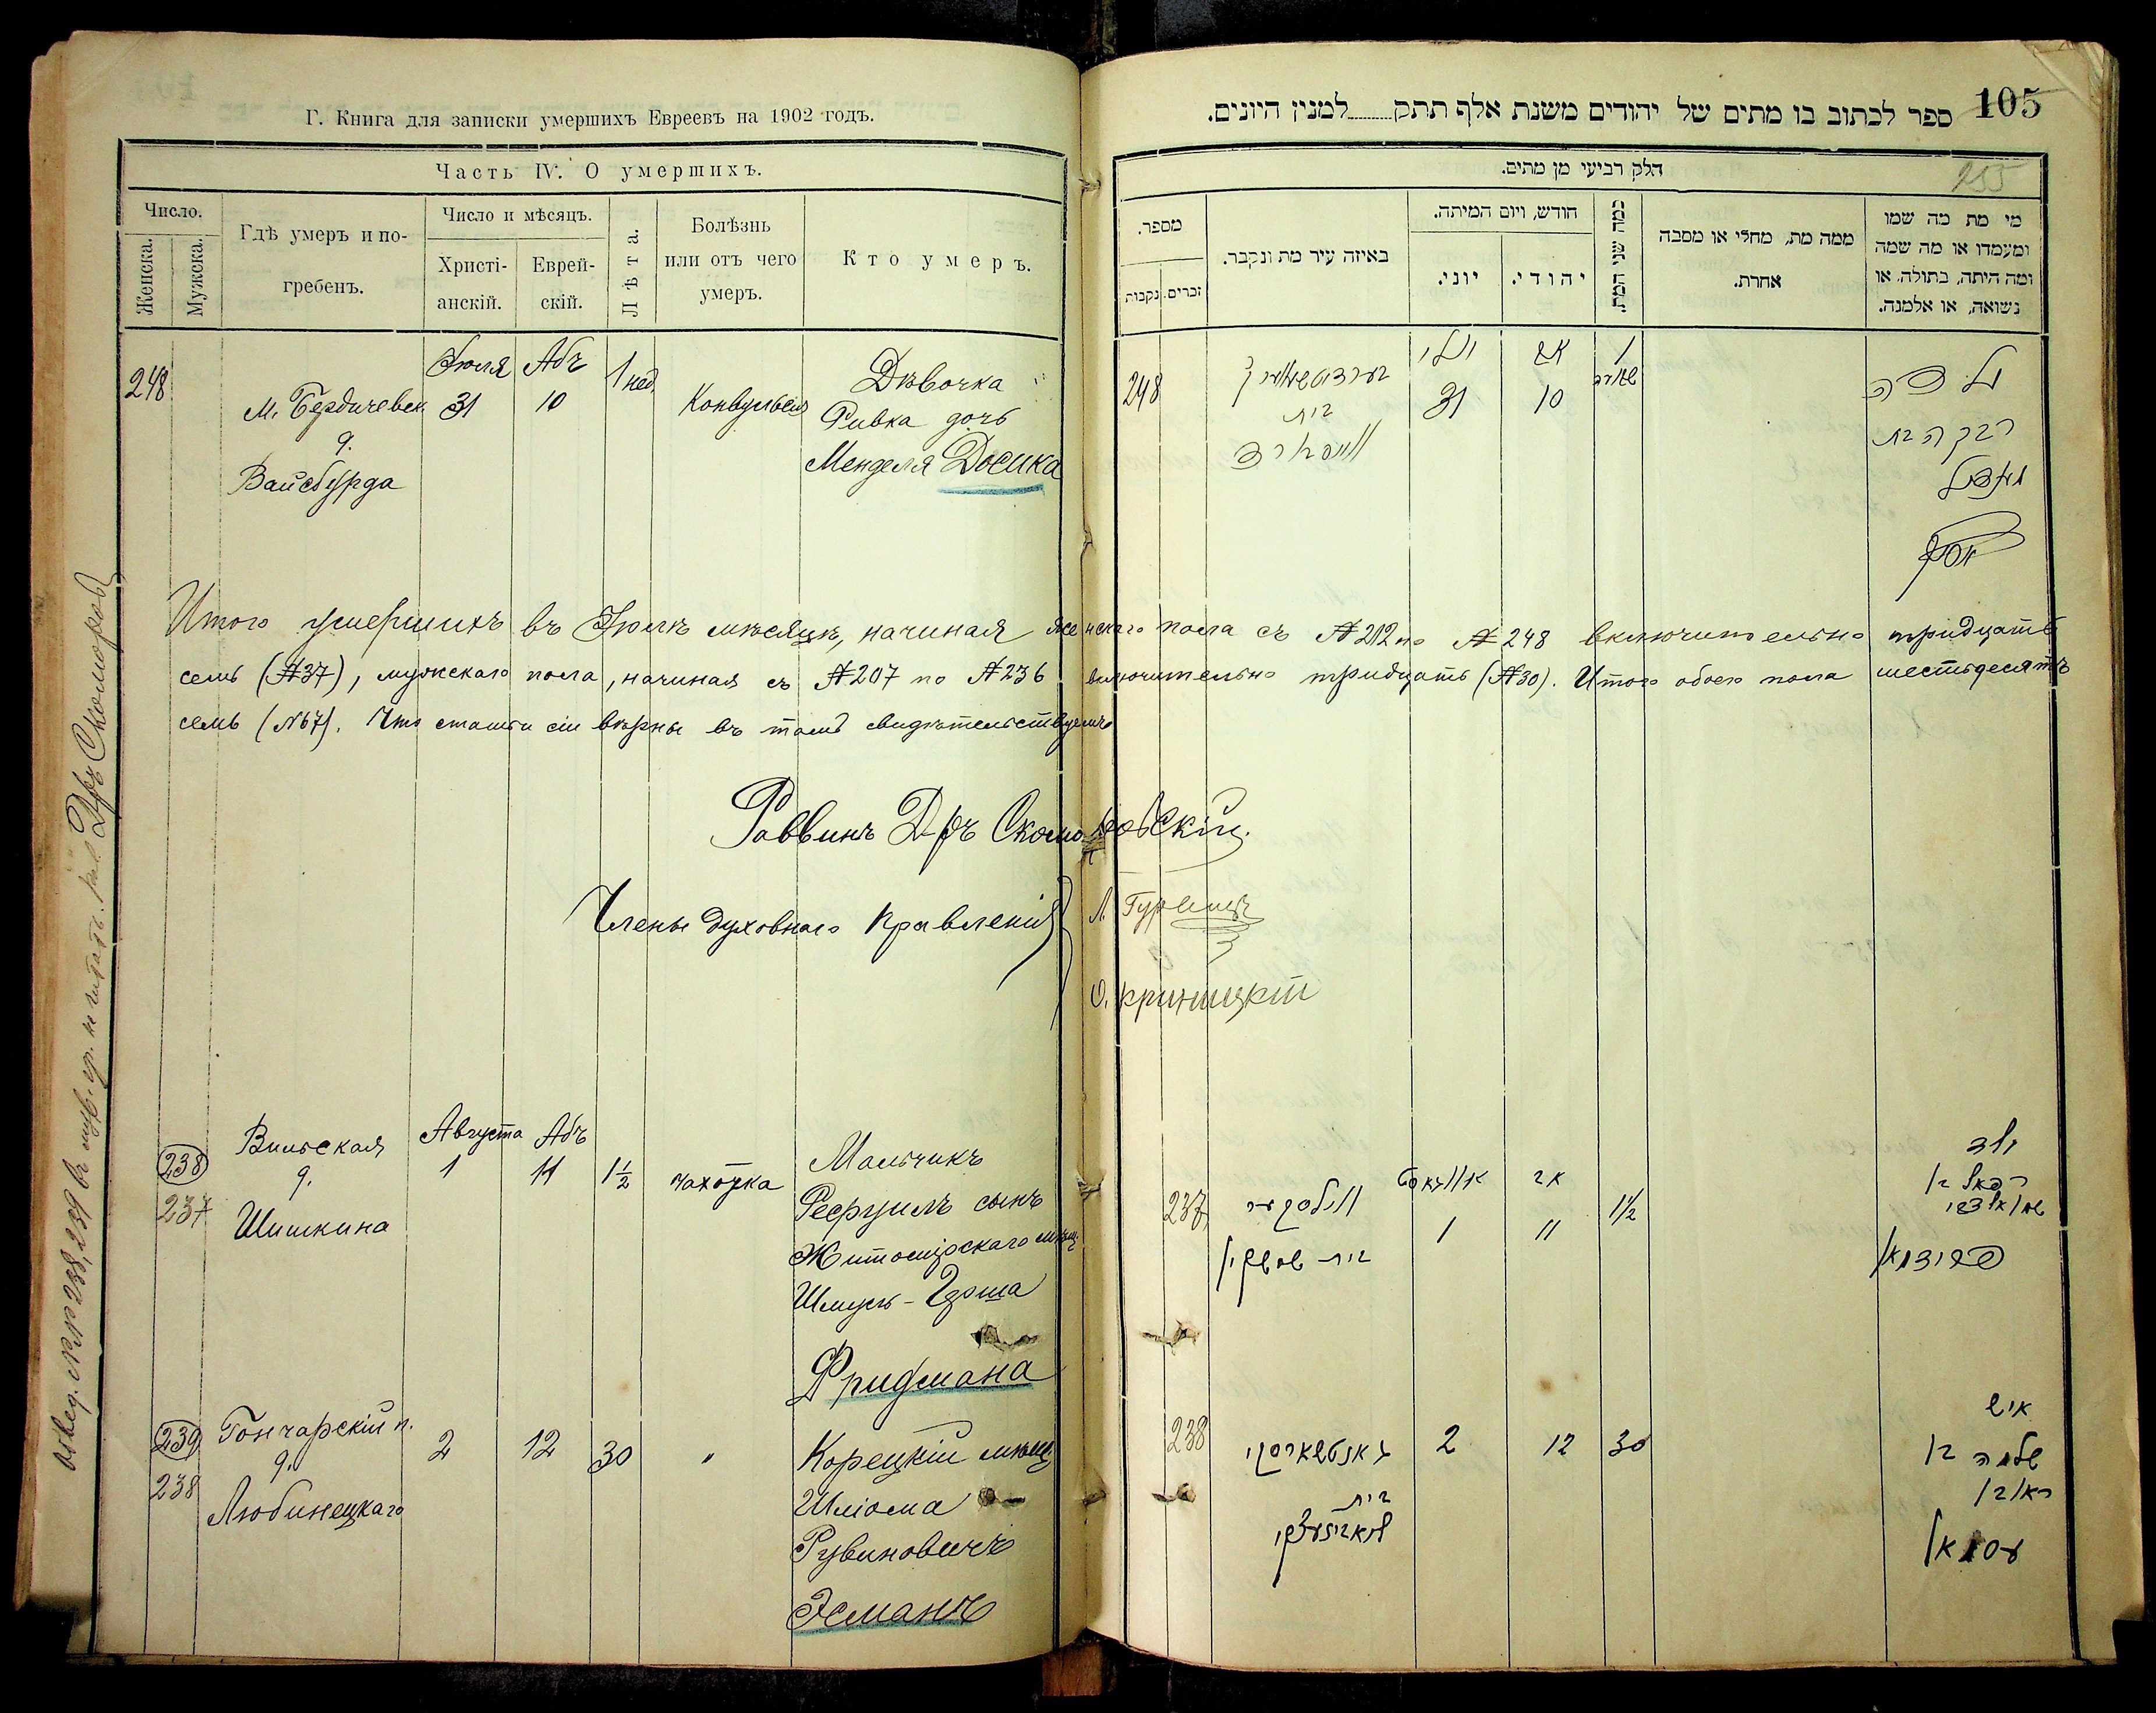 Г. Книга для записки умершихъ Евреевъ на 1902 годъ.
Часть IV. О умершихъ.
Число.
Женска.
Мужска.
Гдѣ умеръ и по-
гребенъ.
Число и мѣсяцъ.
Христі-
анскій.
Еврей-
скій.
Лѣта.
Болѣзнь
или отъ чего
умеръ.
Кто умеръ.
248
М. Бердичевск
д.
Вайсбурда
Іюля
31
Абъ
10
1 нед.
Конвульсія
Дѣвочка
Ривка дочь
Менделя Досика
Итого умершихъ въ Іюлѣ мѣсяцѣ, начиная женскаго пола съ №212 по №248 включительно тридцать
семь (№37), мужскаго пола, начиная съ №207 по №236 включительно тридцать (№30). Итого обоего пола шестьдесятъ
семь (№67). Что статьи сіи вѣрны въ томъ свидѣтельствуемъ
Раввинъ Д-ръ Скоморовскій.
Члены духовнаго Правленія
Л. Гурвицъ
О. Криницкій
238
237
Вильская
д.
Шишкина
Августа
1
Абъ
11
1½
чахотка
Мальчикъ
Рефуилъ сынъ
Житомірскаго мѣщ.
Шмуль-Герша
Фридмана
239
238
Гончарскій п.
д.
Любинецкаго
2
12
30
"
Корецкій мѣщ.
Шліома
Рувиновичъ
Эсманъ
105
255
ספר לכתוב בו מתים של יהודים משנת אלף תתק למנין היונים.
חלק רביעי מן מתים.
מספר.
זכרים.
נקבות
באיזה עיר מת ונקבר.
חודש, ויום המיתה.
יוני.
יהודי.
כמה שני המת.
ממה מת, מחלי או מסבה
אחרת.
מי מת מה שמו
ומעמדו או מה שמה
ומה היתה, בתולה, או
נשואה, או אלמנה.
248
בית
יולי
31
אב
10
1
ילדה
רבקה בת
מענדיל
237
ווילסקיי
בית שישקין
אווגוסט
1
אב
11
1½
ילד
רפאל בן
שמואל צבי
פרידמאן
238
גאנטשארסקי
בית
2
12
30
איש
שלמה בן
ראובן
עסמאן